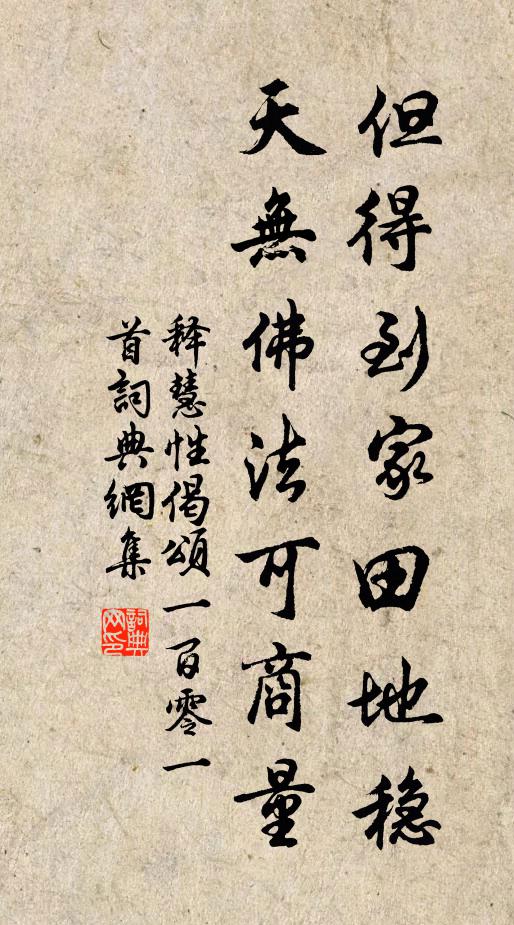 但得到家田地穩
天無佛法可商量
释慧性偈頌一百零一
首詞典網集
詞典
网印